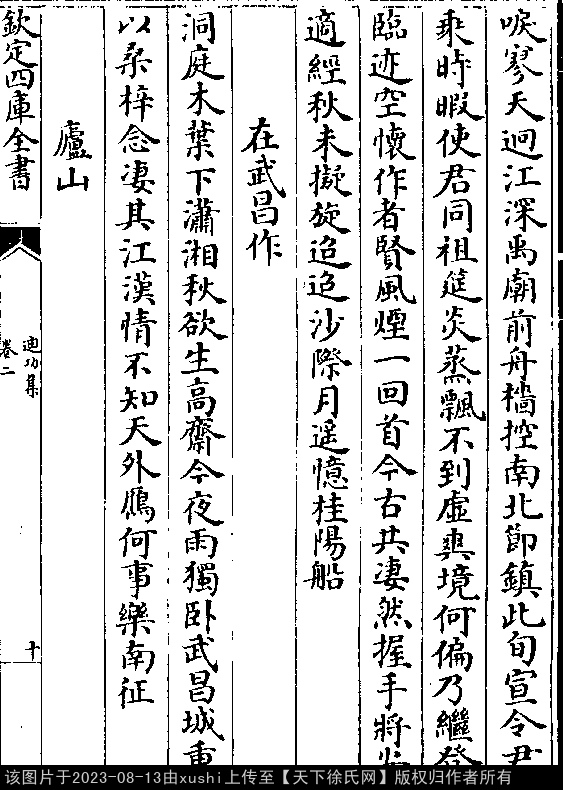 唳寥天迥江深禹廟前舟檣控南北節鎮此旬宣令君
乘時暇使君同祖筵炎蒸飄不到虛爽境何偏乃繼登
臨迹空懷作者賢風煙一回首今古共凄然握手將
適經秋未擬旋迢迢沙際月遥憶桂陽船
在武昌作
洞庭木葉下瀟湘秋欲生高齋今夜雨獨卧武昌城重
以桑梓念凄其江漢情不知天外鴈何事樂南征
廬山
欽定四庫全書
迪功集
卷二
十
该图片于2023-08-13由xushi上传至【天下徐氏网】版权归作者所有